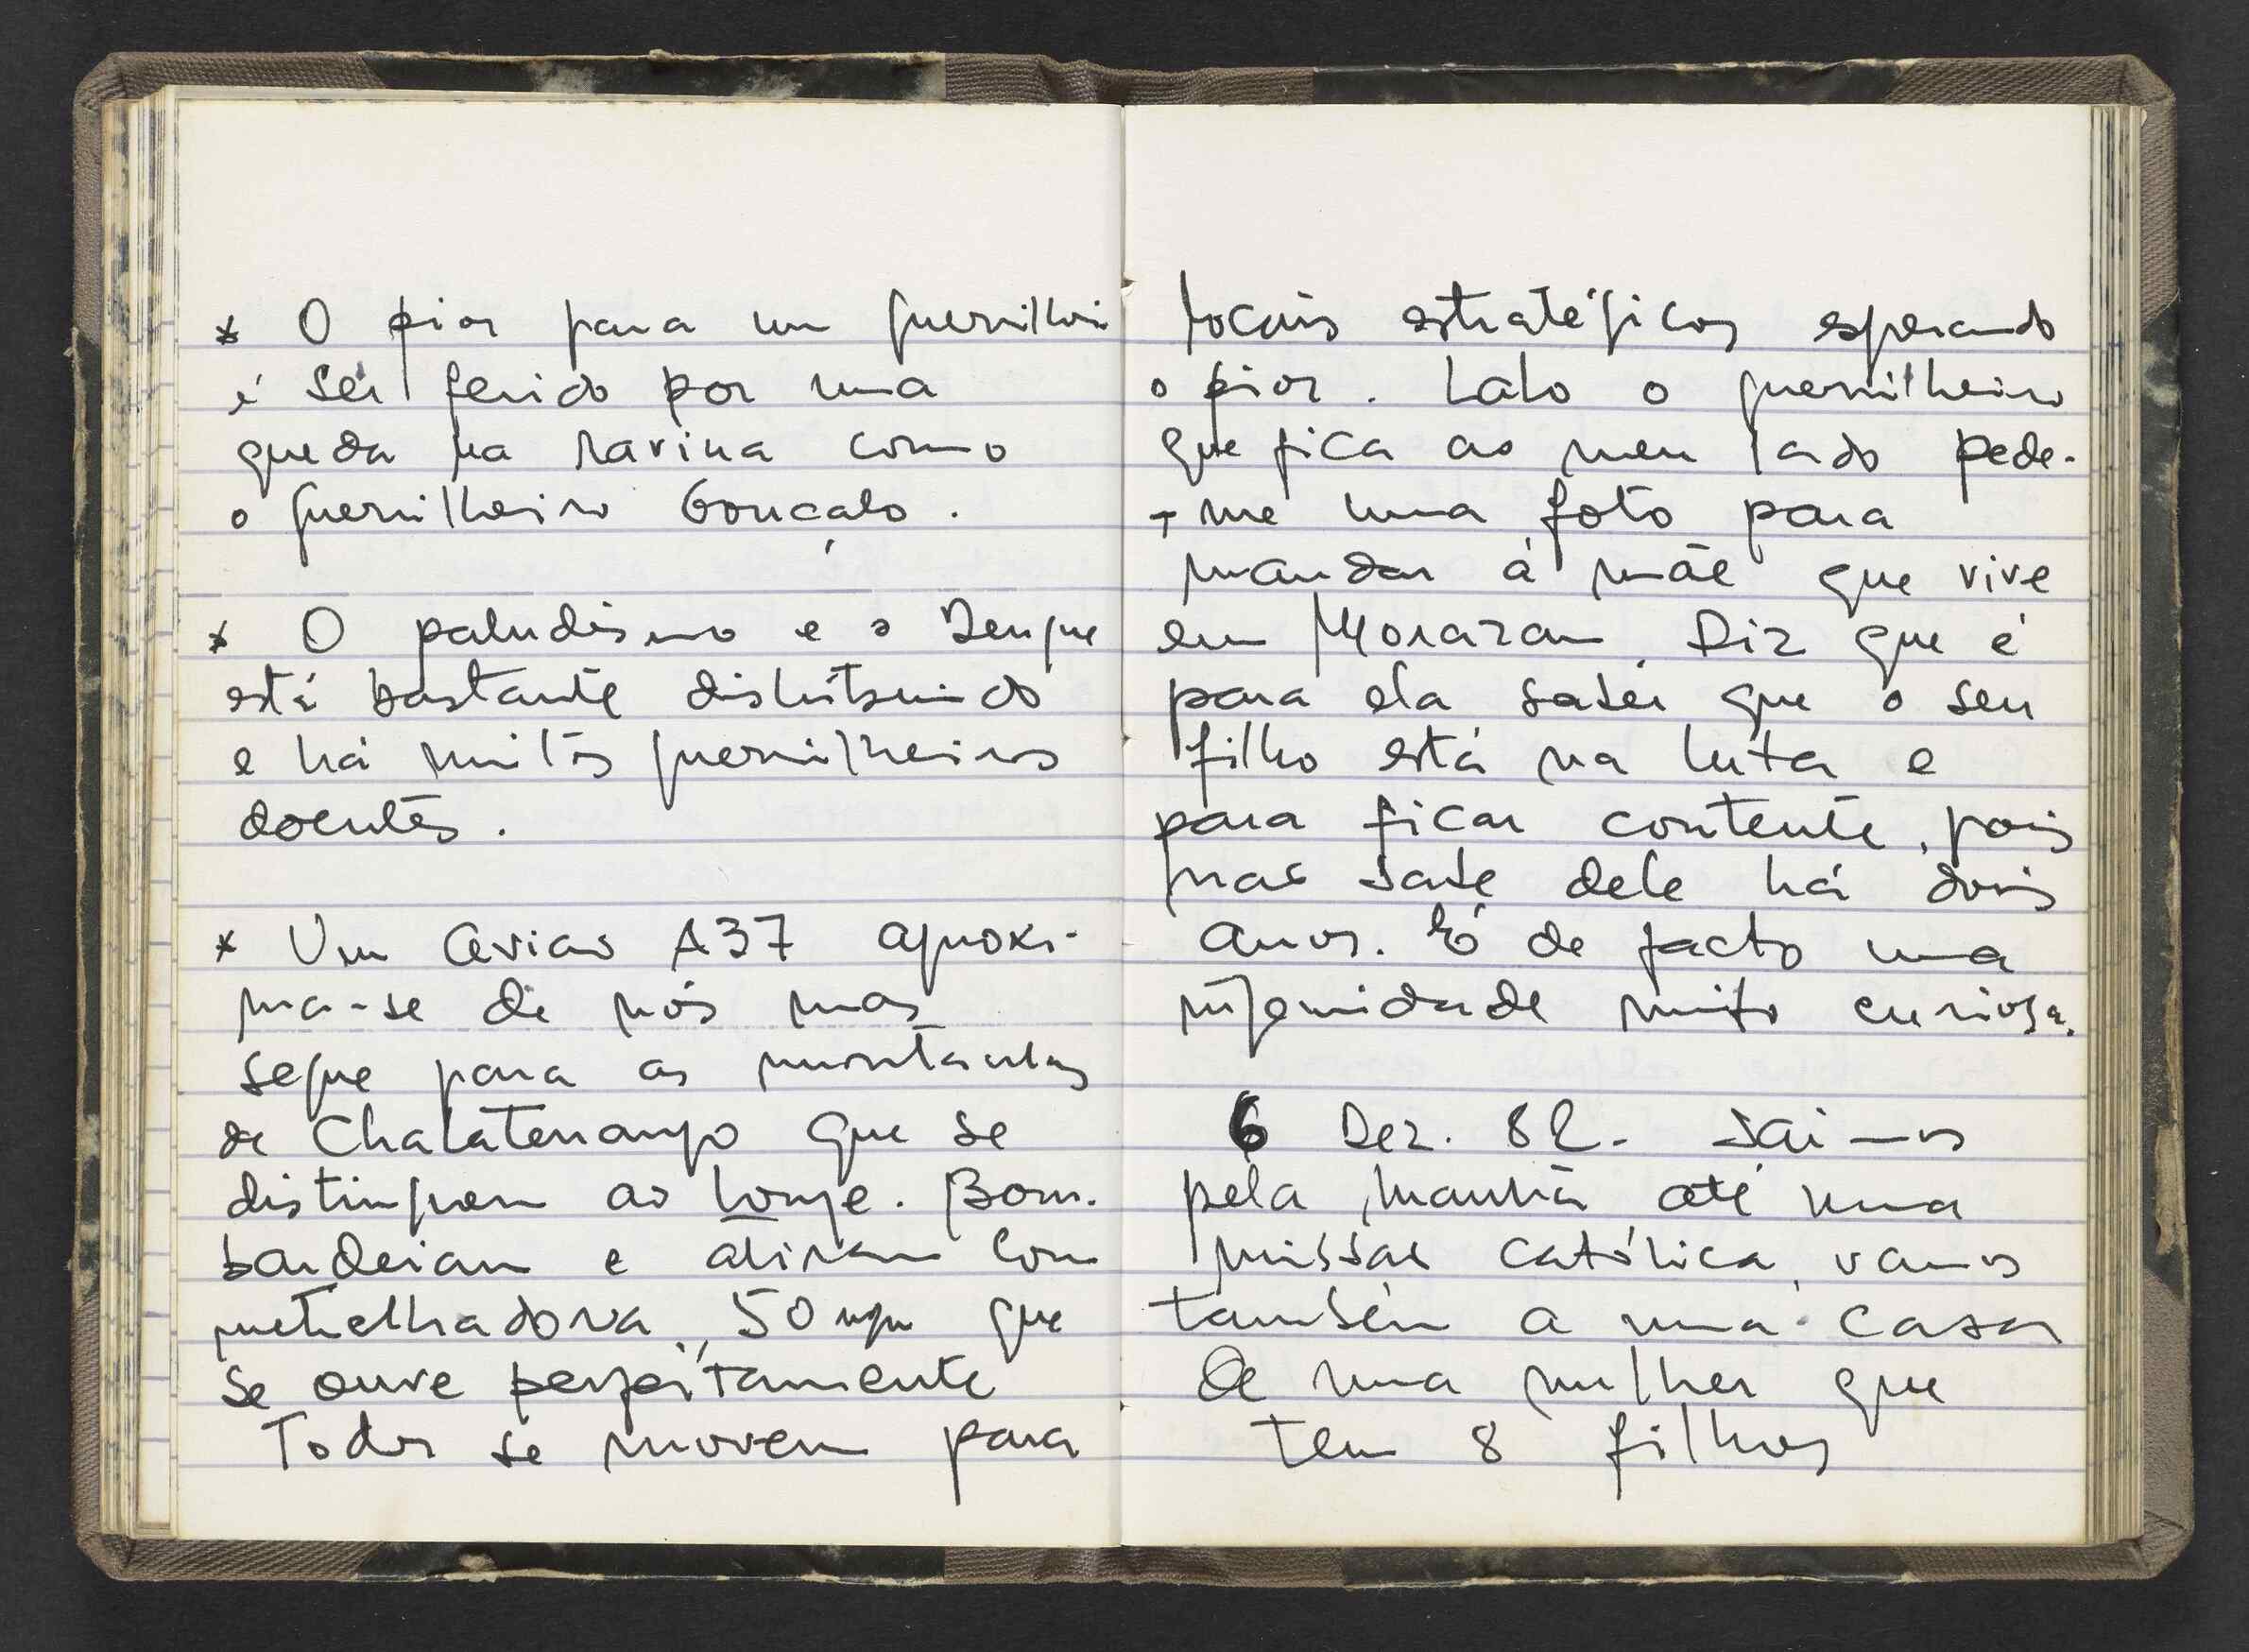 * O pior para um guerrilheiro
é ser ferido por uma
queda na ravina como
o guerrilheiro Gonçalo.
* O paludismo e o Dengue
está bastante distribuido
e há muitos guerrilheiros
doentes.
* Um aviao A37 aproxi-
ma-se de nós mas
segue para as montanhas
de Chalatenango que se
distinguem ao longe. Bom-
bardeiam e atiram com
metralhadora, 50 mm que
se ouve perfeitamente
Todos se movem para
locais estratégicos esperando
o pior. Lalo o guerrilheiro
que fica ao meu lado pede-
-me uma foto para
mandar á mãe que vive
em Morazan. Diz que é
para ela saber que o seu
filho está na luta e
para ficar contente, pois
nao sabe dele há dois
anos. É de facto uma
ingenuidade muito curiosa.
6 Dez. 82- Saimos
pela manhã até uma
missao católica, vamos
também a uma casa
de uma mulher que
tem 8 filhos